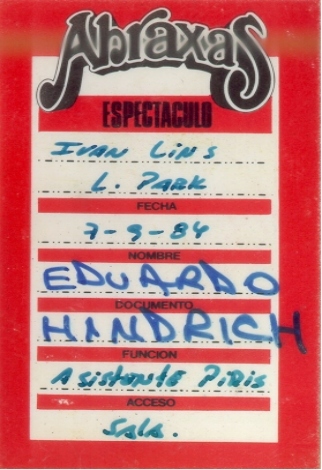 Abraxas
ESPECTACULO
IVAN LINS
L. PARK
FECHA
7-9-84
NOMBRE
EDUARDO
DOCUMENTO
HANDRICH
FUNCION
Asistente Piris
ACCESO
SALA.